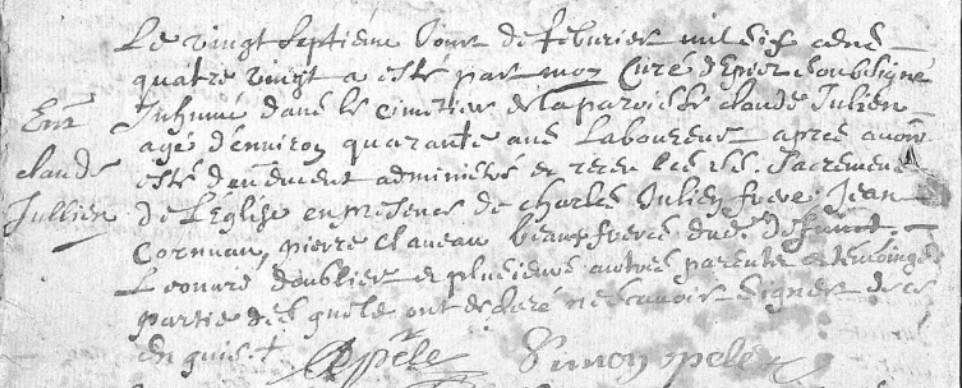 Le vingt septiéme Jour de febvrier mil six cens
quatre vingt a esté par moy Curé d'Epier soubsigné
Ent
Inhumé dans le cimetier de la paroisse claude Julien
agé d'environ quarante ans Laboureur apres avoir
claude
esté deuement administré et receu les SS. Sacremens
Jullien
de L'Eglise en presence de charles Julien frere, Jean
Cormuau, pierre claveau beaux freres dud. defunct.
Leonard doublier et plusieurs autres parents et temoings
partie desquels ont declaré ne scavoir signer de ce
enquis.
Simon pele